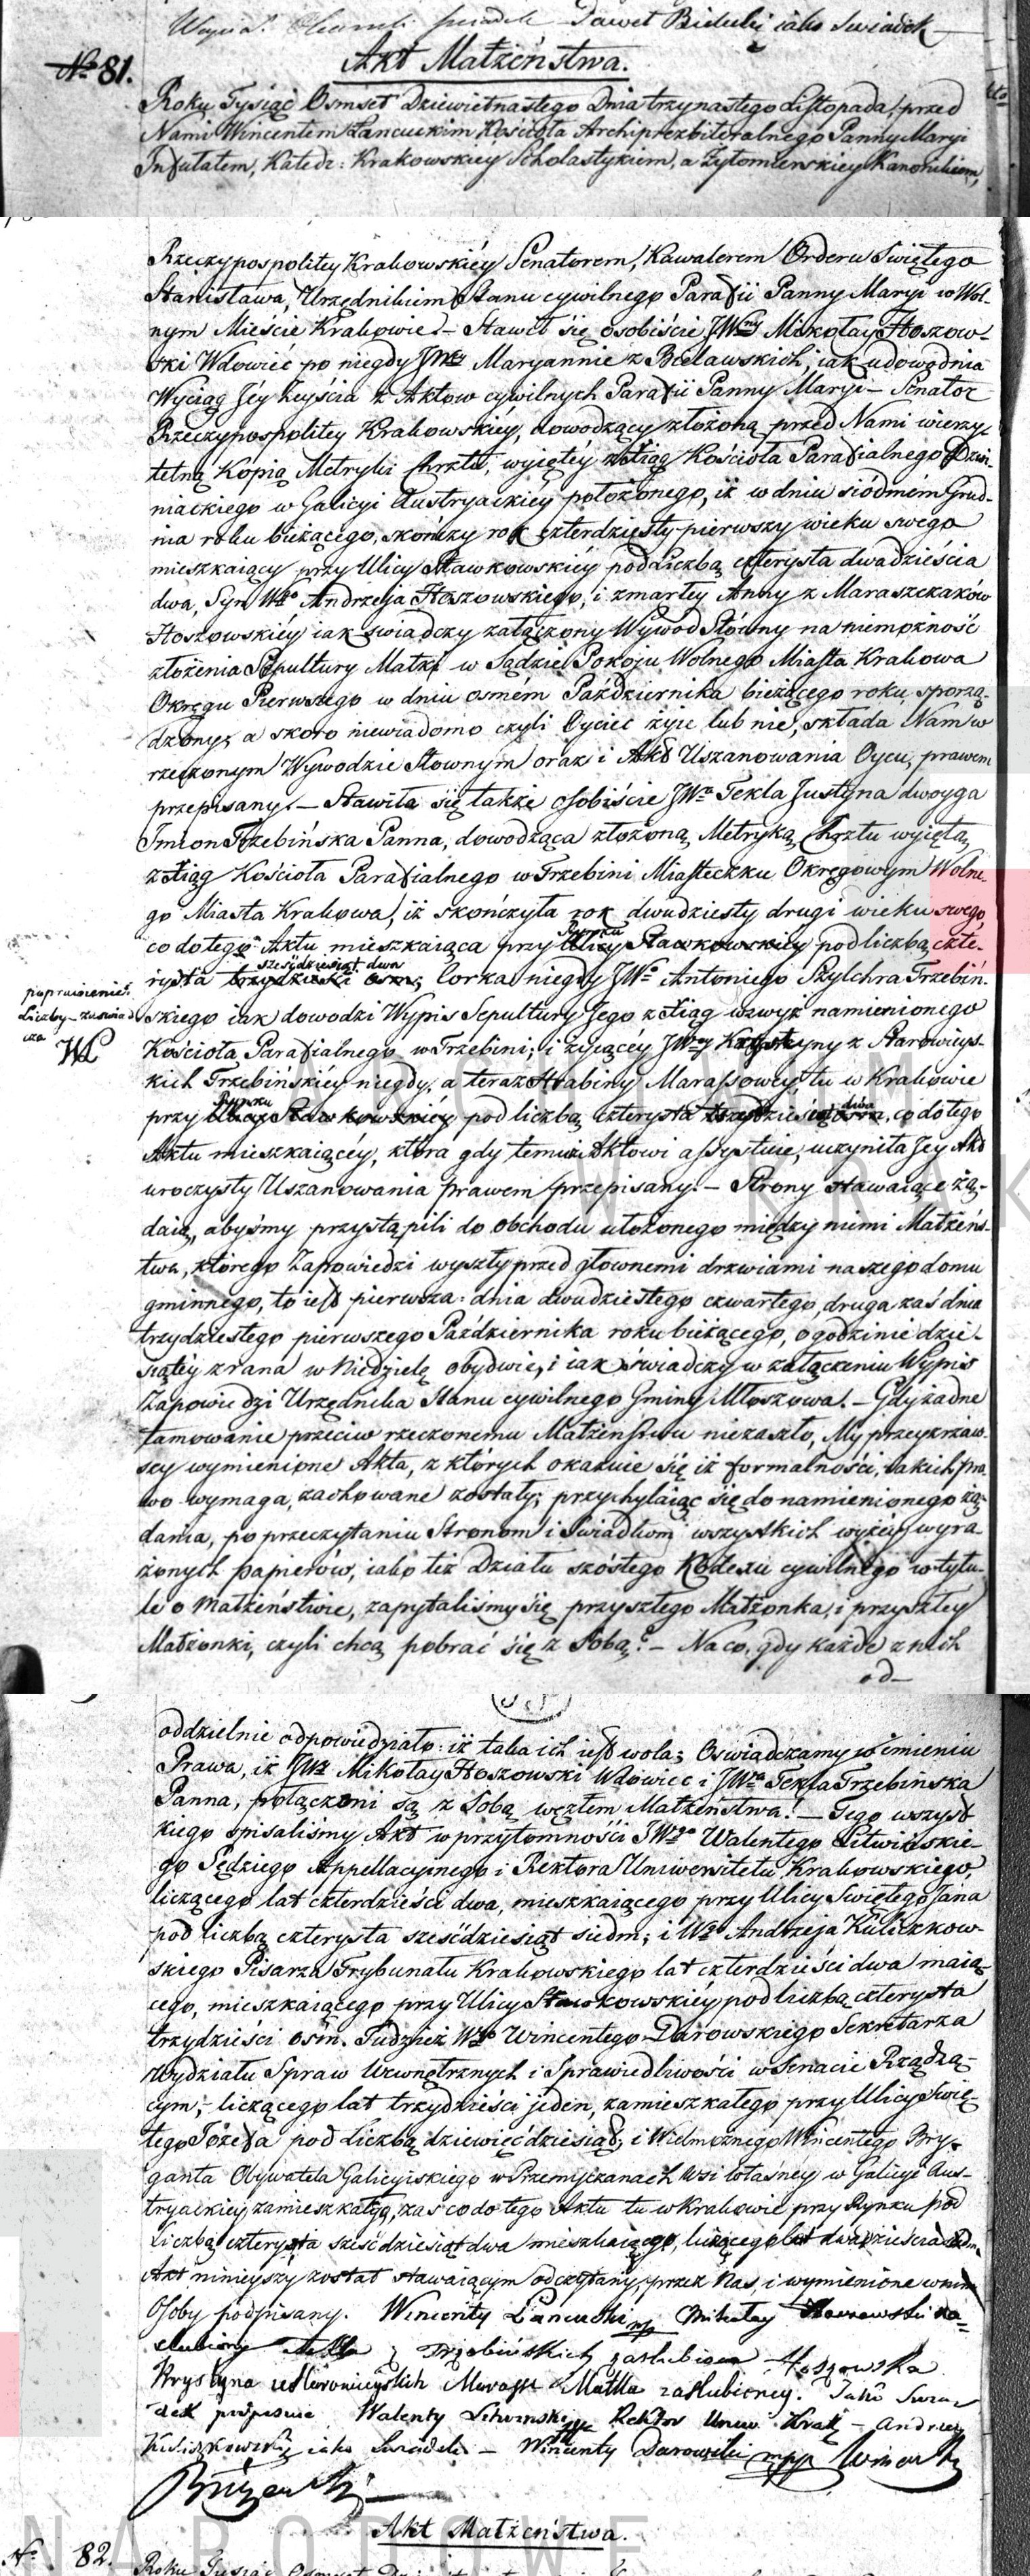 Paweł Bielski jako Swiadek
No 81.
Akt Małżeństwa.
Roku Tysiąć Osmset Dziewietnastego Dnia trzynastego Listopada, przed
Nami Wincentem Łancuckim Kościoła Archiprezbiteralnego Panny Maryi
Infułatem, Katedr: Krakowskiey Scholastykiem, a Zytomierskiey Kanonikiem,
Rzeczypospolitey Krakowskiéy Senatorem, Kawalerem Orderu Swiętego
Stanisława, Urzędnikiem Stanu cywilnego Parafii Panny Maryi w Wol-
nym Mieście Krakowie. – Stawił się osobiście JWny Mikołay Hoszow-
ski Wdowieć po niegdy JWéy Maryannie z Bielawskich, iak udowadnia
Wyciąg Jéy Zeyścia z Aktow cywilnych Parafii Panny Maryi – Senator
Rzeczypospolitey Krakowskiéy, dowodzący złożoną przed Nami wierzy-
telną Kopią Metryki Chrztu, wyiętéy z Xiąg Kościoła Parafialnego
niackiego w Galicyi Austryackiéy położonego, iż w dniu siódmém Grud-
nia roku bieżącego, skończy rok czterdziesty pierwszy wieku swego
mieszkaiący przy Ulicy Sławkowskiéy pod Liczbą czterysta dwadzieścia
dwa, Syn Wgo Andrzeja Hoszowskiego, i zmarłey Anny z Maraszczaków
Hoszowskiéy iak swiadczy załączony Wywod Słowny na niemożność
złożenia Sepultury Matki w Sądzie Pokoju Wolnego Miasta Krakowa
Okręgu Pierwszego w dniu osmém Października bieżącego roku, sporzą-
dzony; a skoro niewiadomo czyli Oyciec żyie lub nie, składa Nam w
rzeczonym Wywodzie Słownym oraz i Akt Uszanowania Oycu, prawem
przepisany. – Stawiła się także osobiście JWa Tekla Justyna dwoyga
Imion Trzebińska Panna, dowodząca złożoną Metryką Chrztu wyiętą
z Xiąg Kościoła Parafialnego w Trzebini Miasteczku Okręgowym Wolne-
go Miasta Krakowa, iż skończyła rok dwudziesty drugi wieku swego,
Rynku
co do tego Aktu mieszkaiąca przy Ulicy Sławkowskiéy pod liczbą czte-
sześćdziesiąt dwa
rysta trzydzieści osm, Corka niegdy JWo Antoniego Szylchra Trzebiń-
poprawienie
Liczby – zaswiad
cza
WŁ
skiego iak dowodzi Wypis Sepultury Jego z Xiąg wzwyż namienionego
Kościoła Parafialnego w Trzebini; i żyiącéy JWéy Krystyny z Starowieys-
kich Trzebińskiéy niegdy, a teraz Hrabiny Marassowéy, tu w Krakowie
Rynku
dwa
przy Ulicy Sławkowskiéy pod liczbą czterysta co do tego
Aktu mieszkaiącéy, która gdy temuż Aktowi assystuie, uczyniła Jey Akt
uroczysty Uszanowania prawem przepisany. – Strony stawaiące żą-
daią, abyśmy przystąpili do obchodu ułożonego między niemi Małżeńs-
twa, którego Zapowiedzi wyszły przed głownemi drzwiami naszego domu
gminnego, to iest pierwsza: dnia dwudziestego czwartego, druga zaś dnia
trzydziestego pierwszego Października roku bieżącego, o godzinie dzie-
siątéy z rana w Niedzielę obydwie, i iak świadczy w załączeniu Wypis
Zapowiedzi Urzędnika Stanu cywilnego Gminy Młoszowa. – Gdy żadne
tamowanie przeciw rzeczonemu Małżeństwu niezaszło, My przeyrzaw-
szy wymienione Akta, z których okazuie się iż formalności, iakich pra-
wo wymaga, zachowane zostały; przychylaiąc się do namienionego żą-
dania, po przeczytaniu Stronom i Świadkom wszystkich wyżéy wyra-
żonych papierów, iako też Działu szóstego Kodexu cywilnego w tytu-
le o Małżeństwie, zapytaliśmy się przyszłego Małżonka, i przyszłey
Małżonki, czyli chcą pobrać się z Sobą? – Na co, gdy każde z nich
od-
oddzielnie odpowiedziało: iż taka ich iest wola; Oswiadczamy w imieniu
Prawa, iż JWny Mikołay Hoszowski Wdowiec i JWna Tekla Trzebińska
Panna, połączeni są z Sobą węzłem Małżeństwa. – Tego wszyst
kiego spisaliśmy Akt w przytomności JWgo Walentego Litwińskie-
go Sędziego Appellacyinego i Rektora Uniwersitetu Krakowskiego,
liczącego lat czterdzieści dwa, mieszkaiącego przy Ulicy Swiętego Jana
pod liczbą czterysta sześćdziesiąt siedm; i Wgo Andrzeja Kuliczkow-
skiego Pisarza Trybunału Krakowskiego lat czterdzieści dwa maią-
cego, mieszkaiącego przy Ulicy Sławkowskiéy pod liczbą czterysta
trzydzieści osm. Tudzież Wgo Wincentego Darowskiego Sekretarza
Wydziału Spraw Wewnętrznych i Sprawiedliwości w Senacie Rządzą-
cym, liczącego lat trzydzieści jeden, zamieszkałego przy Ulicy Swię-
tego Józefa pod Liczbą dziewięćdziesiąt; i Wielmożnego Wincentego Bry-
ganta Obywatela Galicyiskiego w Przemyczanach Wsi własney w Galicyi Aus-
tryackiey zamieszkałego, zaś co do tego Aktu tu w Krakowie przy Rynku pod
Liczbą czterysta sześćdziesiąt dwa mieszkaiącego, liczącego lat dwadzieścia
Akt ninieyszy został stawaiącym odczytany, przez Nas, i wymienione w nim
Osoby podpisany. Wincenty Łancucki mp Mikołay Hoszowski za-
slubiony Tekla z Trzebińskich zaslubiona Hoszowska.
Krystyna z Starowieyskich Marassé Matka zaślubioney. Jako Swia-
dek podpisuie Walenty Litwinski Rektor Uniw. Krak – Andrzey
Kuliczkowski jako Swiadek – Wincenty Darowski mpp Wincenty
Brygant
Akt Małżeństwa.
No 82.
Roku Tysiąc Osmset
NARODOWE